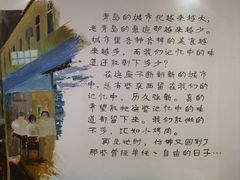 青岛的城市化越来越大，
老青岛的痕迹却越来越少。
城市里各种各样的美食越
来越多，而我们记忆中的味
道还能剩下多少？
在这座不断刷新的城市
中，还有些东西留在我们的
记忆中，历久弥新。真的
希望能把这些记忆中的味
道都留下来。我们能做的
不多，比如小烤肉。
再见她时，仿佛又回到了
那些曾经单纯、自由的日子…